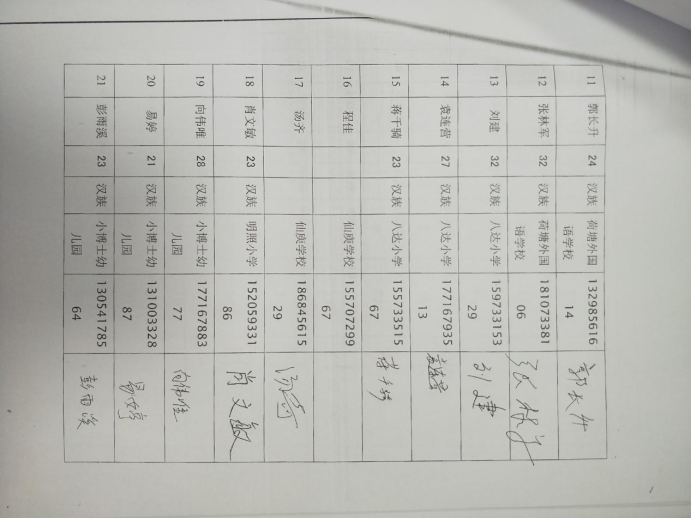 11 郭长升 24 汉族 荷塘外国语学校 13298561614 郭长升
12 张林军 32 汉族 荷塘外国语学校 18107338106 张林军
13 刘建 32 汉族 八达小学 15973315329 刘建
14 袁连营 27 汉族 八达小学 17716793513 袁连营
15 蒋千骑 23 汉族 八达小学 15573351567 蒋千骑
16 程佳 仙庾学校 15570729967
17 汤齐 仙庾学校 18684561529 汤齐
18 肖文敏 23 汉族 明照小学 15205933186 肖文敏
19 向伟唯 28 汉族 小博士幼儿园 17716788377 向伟唯
20 易婷 21 汉族 小博士幼儿园 13100332887 易婷
21 彭雨溪 23 汉族 小博士幼儿园 13054178564 彭雨溪